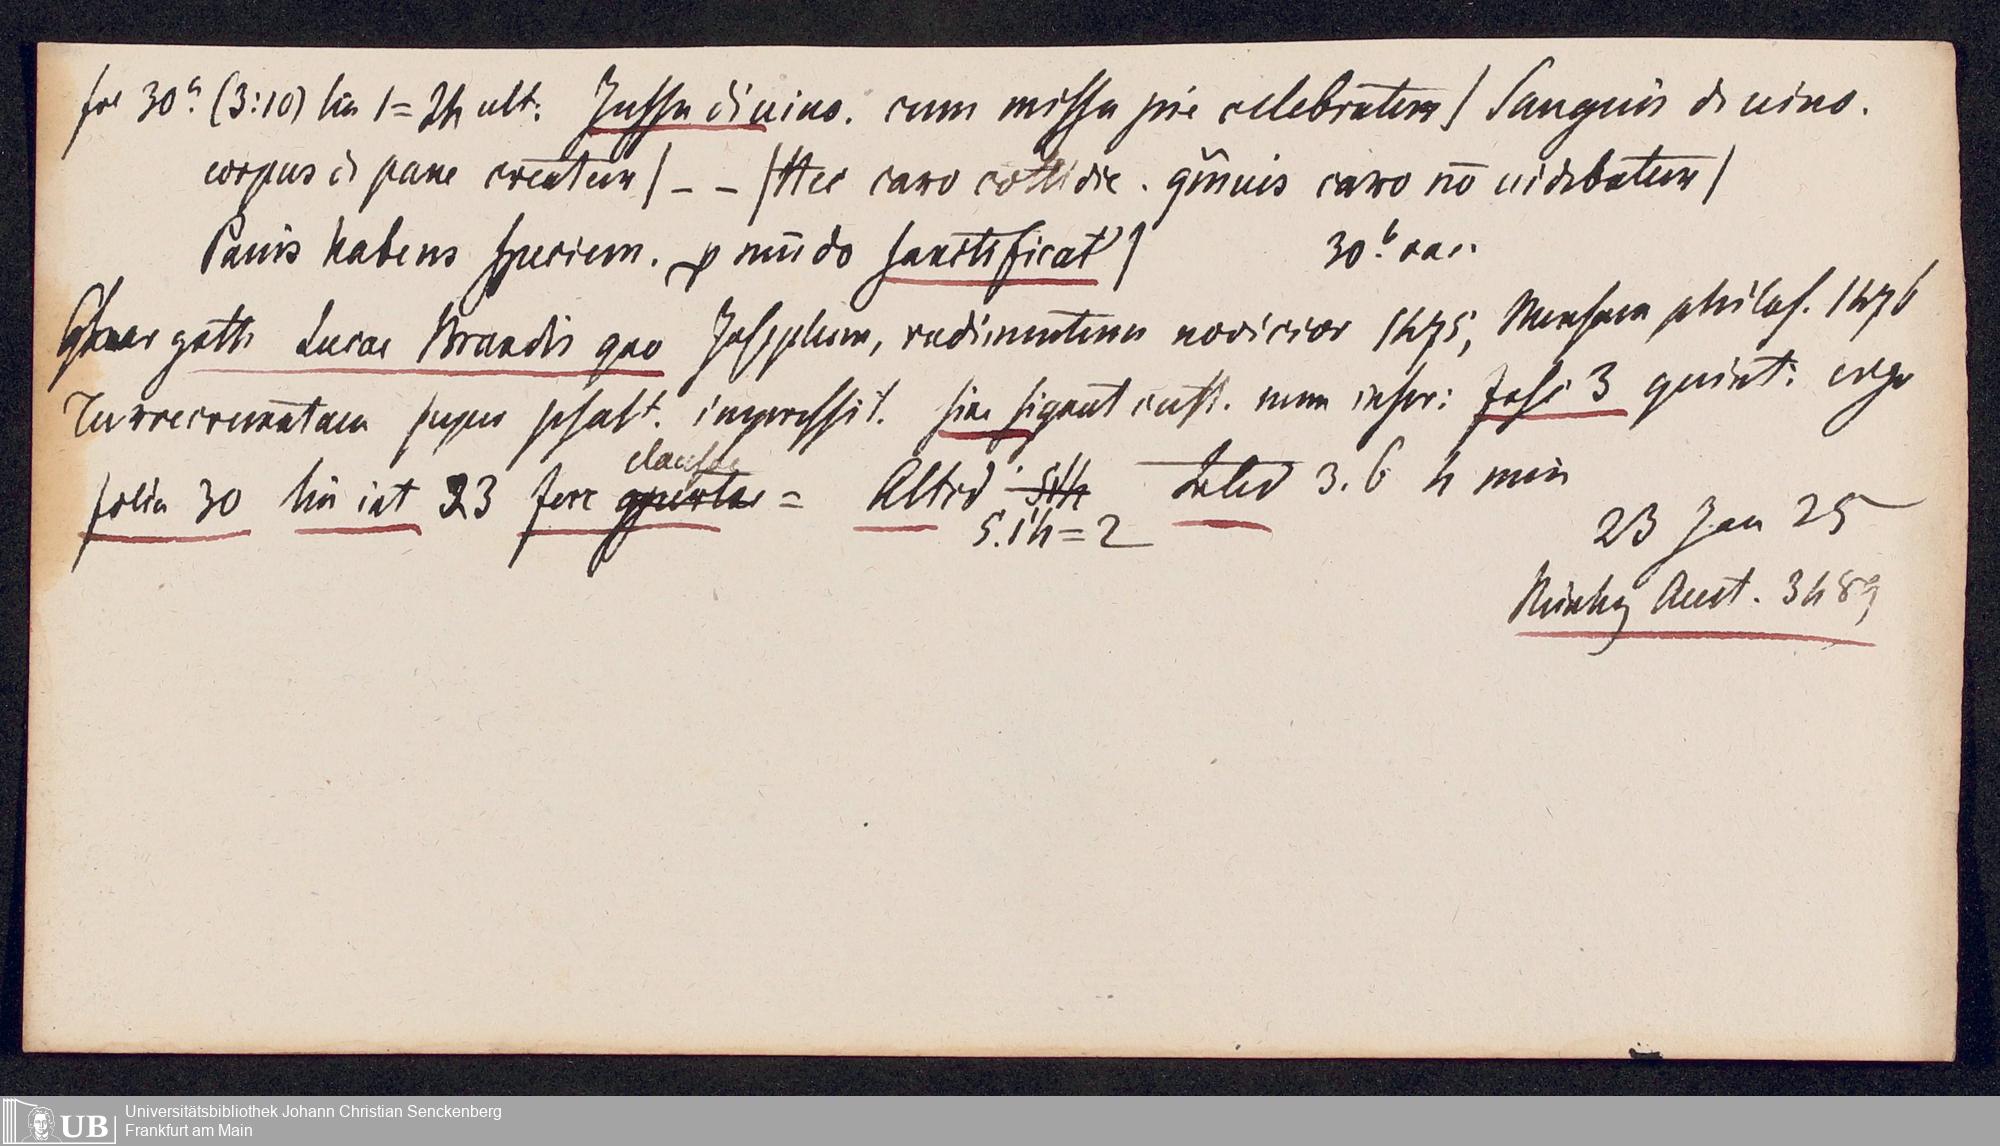 fol 30ᵃ (3:10) lin 1 = 24 ult: Jussu diuino. cum missa pie celebratur / Sanguis de uino.
corpus de pane creatur / – – / Hec caro cottidie. qm̄uis caro nō uidebatur /
Panis habens speciem. p mūdo sanctificat' / 30ᵇ vac.
goth Lucae Brandis quo Josephum, rudimentum noviciorum 1475, philos. 1476
Turrecrematam super psalt. impressit. sine signat cust. num inser: fasc 3 quint: ergo
folia 30 lin int 23 fere clausae = Altid 5.14 = 2 3.6 4 min
23 Jan 25
Auct. 3489
Universitätsbibliothek Johann Christian Senckenberg
Frankfurt am Main
UB